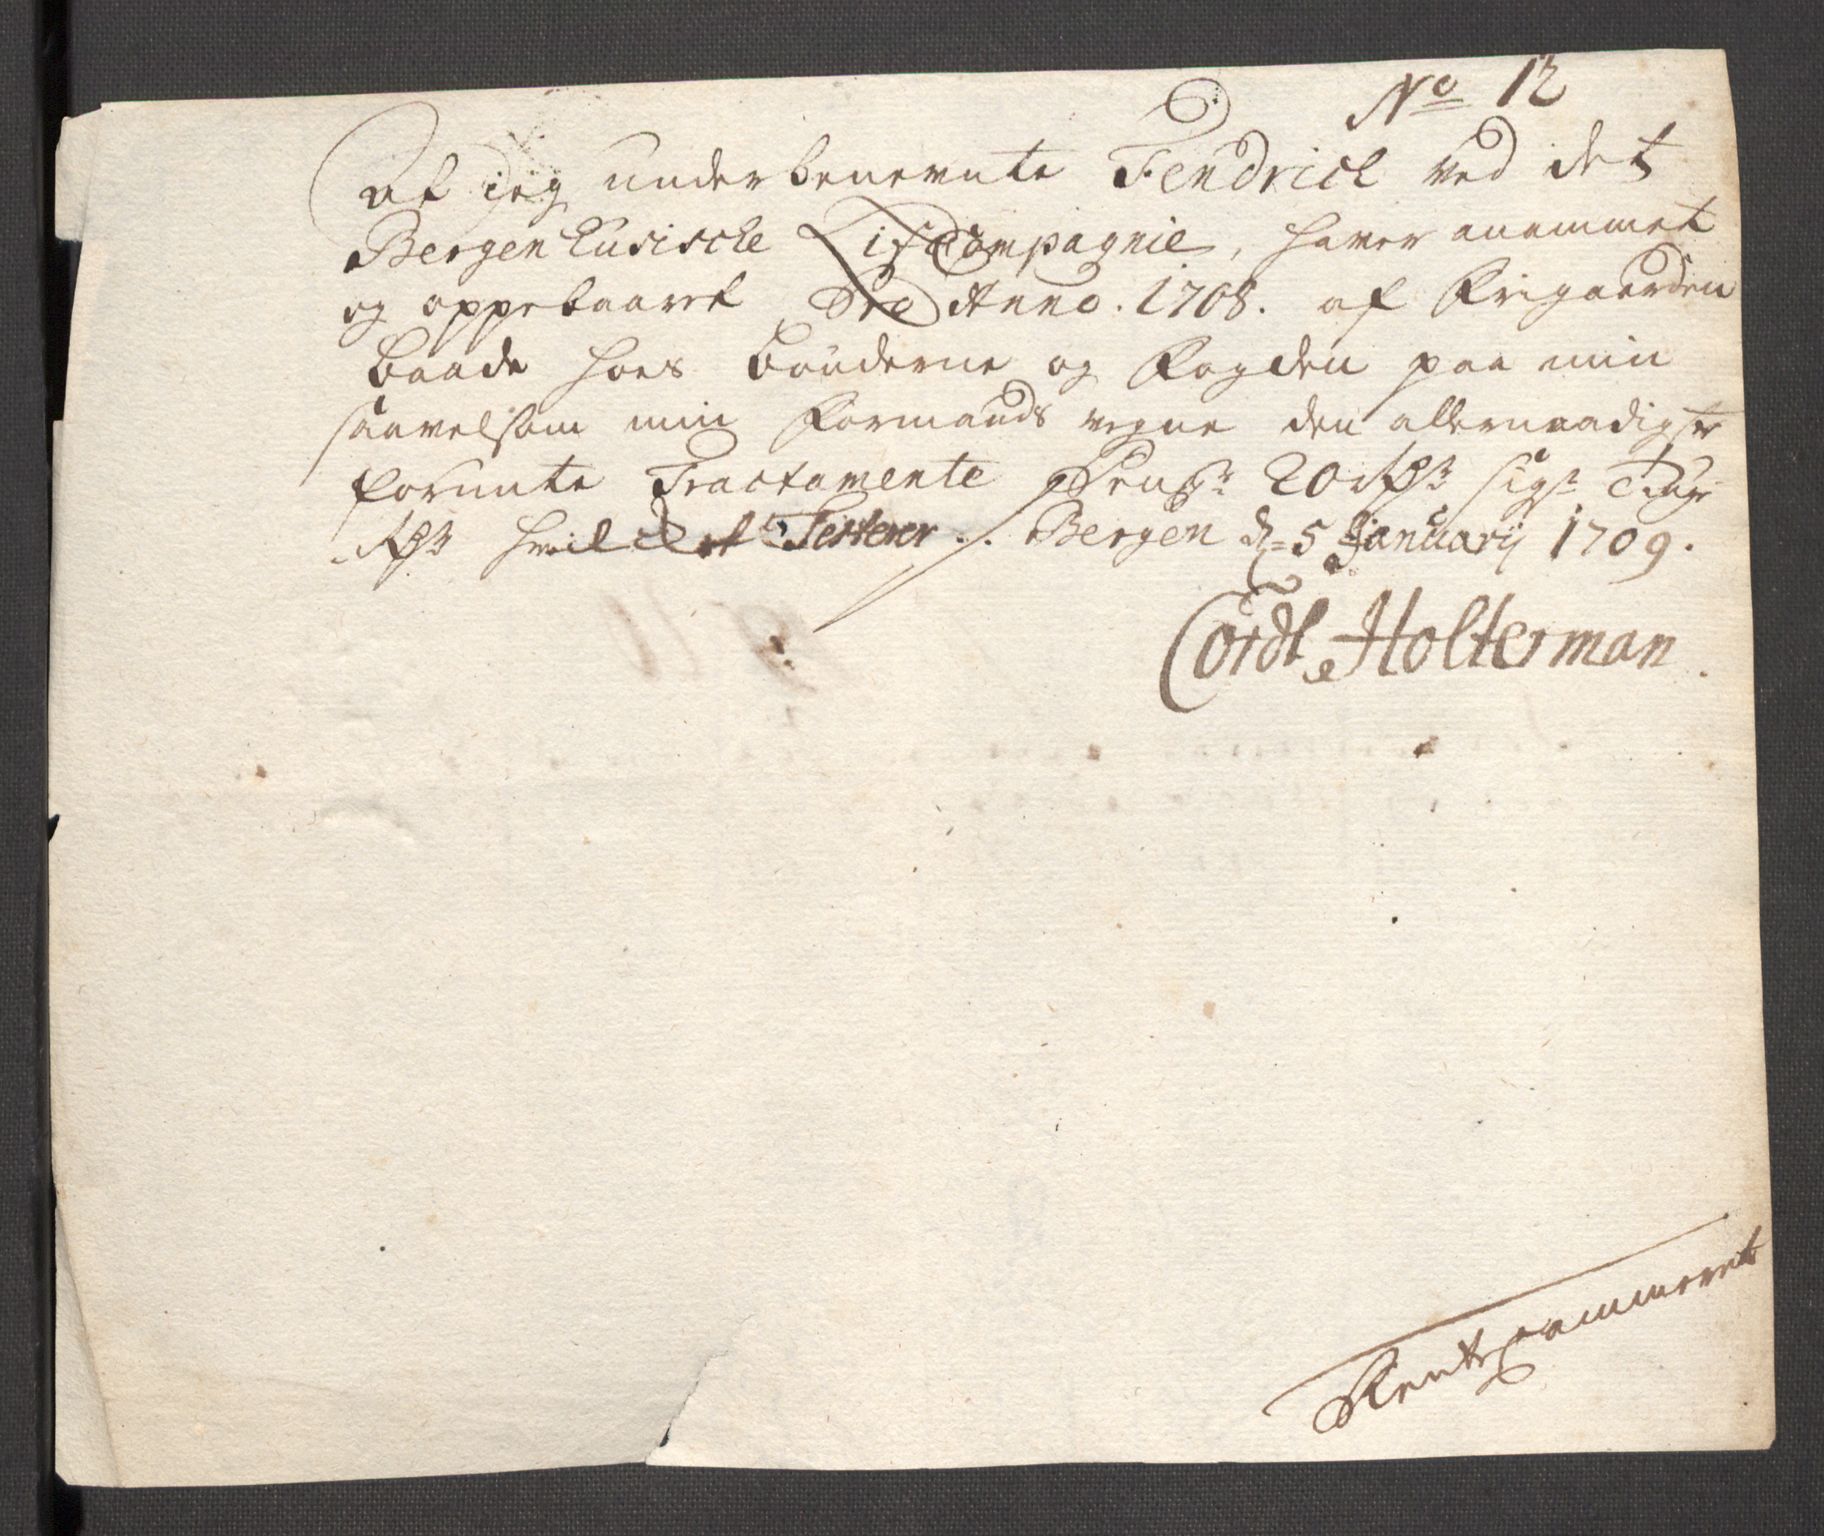 No 12
At jeg underbenevnte Fendrich ved det
Bergenhusische Lifcompagnie, haver anammet
og oppebaaret Pro Anno 1708. af Frigaarden
baade hoes bønderne og Fogden paa min
saavelsom min Formands vegne den allernaadigste
forunte Tractamente Penge 20 Rdr sige Tiuge
Rdr hvilcket Testerer ./. Bergen d: 5 Januarij 1709.
Cordt Holterman
Rentecammeret